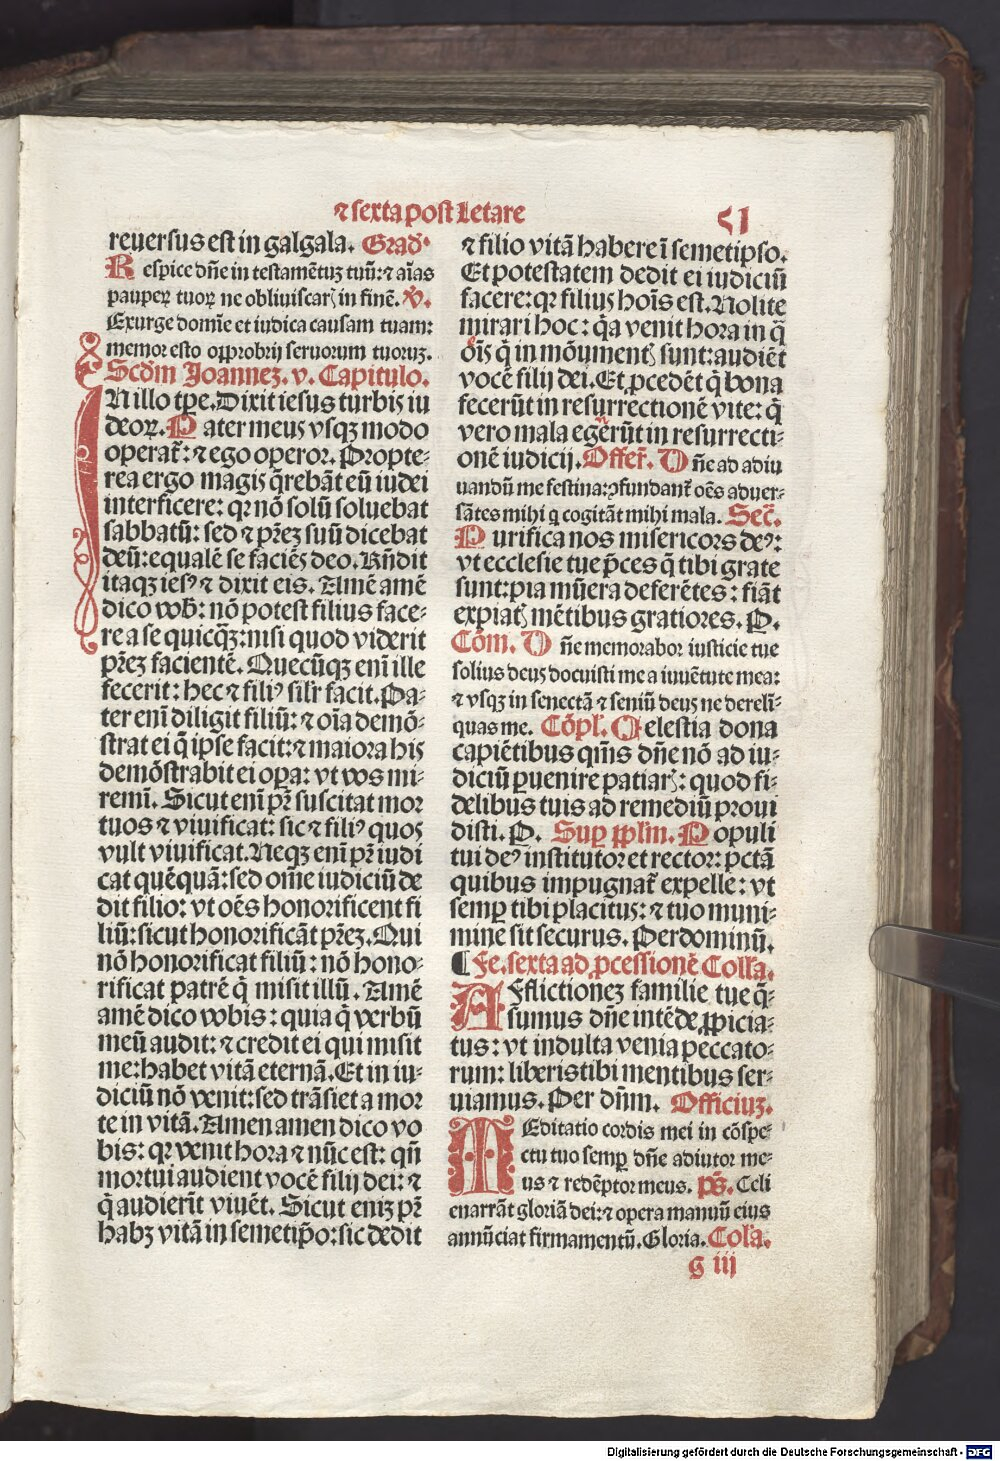 ⁊ sexta post Letare
51
reuersus est in galgala. Grad̛
Respice dn̄e in testamētuꝫ tuū: ⁊ aīas
pauperꝝ tuoꝝ ne obliuiscarꝭ in finē. v̛.
Exurge domīe et iudica causam tuam:
memor esto opprobrij seruorum tuoruꝫ.
Scd̄m Joanneꝫ. v. Capitulo.
IN illo tꝑe. Dixit iesus turbis iu
deoꝝ. Pater meus vsqꝫ modo
operaṫ: ⁊ ego operor. Propte⸗
rea ergo magis q̄rebāt eū iudei
interficere: qꝛ nō solū soluebat
sabbatū: sed ⁊ pr̄eꝫ suū dicebat
deū: equalē se faciēs deo. Rn̄dit
itaqꝫ iesꝰ ⁊ dixit eis. Amē amē
dico vob̄: nō potest filius face⸗
re a se quicq̄ꝫ: nisi quod viderit
pr̄eꝫ facientē. Quecūqꝫ enī ille
fecerit: hec ⁊ filiꝰ sil̛r facit. Pa⸗
ter enī diligit filiū: ⁊ oīa demō⸗
strat ei q̄ ipse facit: ⁊ maiora his
demōstrabit ei oꝑa: vt vos mi⸗
remī. Sicut enī pr̄ suscitat mor
tuos ⁊ viuificat: sic ⁊ filiꝰ quos
vult viuificat. Neqꝫ enī pr̄ iudi
cat quēquā: sed om̄e iudiciū de
dit filio: vt oēs honorificent fi
liū: sicut honorificāt pr̄eꝫ. Qui
nō honorificat filiū: nō hono⸗
rificat patrē q̄ misit illū. Amē
amē dico vobis: quia q̄ verbū
meū audit: ⁊ credit ei qui misit
me: habet vitā eternā. Et in iu⸗
diciū nō venit: sed trāsiet a mor
te in vitā. Amen amen dico vo
bis: qꝛ venit hora ⁊ nūc est: qn̄
mortui audient vocē filij dei: ⁊
q̄ audierīt viuēt. Sicut eniꝫ pr̄
habꝫ vitā in semetiꝑo: sic dedit
⁊ filio vitā habere ī semetipso.
Et potestatem dedit ei iudiciū
facere: qꝛ filius hoīs est. Nolite
mirari hoc: q̄a venit hora in q̄
oēs q̄ in mōumentꝭ sunt: audiēt
vocē filij dei. Et ꝓcedēt q̄ bona
fecerūt in resurrectionē vite: q̄
vero mala egerūt in resurrecti⸗
onē iudicij. Offeṙ. Dn̄e ad adiu
uandū me festina: ꝯfundanṫ oēs aduer⸗
sātes mihi q̄ cogitāt mihi mala. Secṙ.
Purifica nos misericors deꝰ:
vt ecclesie tue p̄ces q̄ tibi grate
sunt: pia mūera deferētes: fiāt
expiatꝭ mētibus gratiores. P.
Cōm. Dn̄e memorabor iusticie tue
solius deus docuisti me a iuuētute mea:
⁊ vsqꝫ in senectā ⁊ seniū deus ne derelī⸗
quas me. Cōpl̛. Celestia dona
capiētibus qm̄s dn̄e nō ad iu⸗
diciū ꝑuenire patiarꝭ: quod fi⸗
delibus tuis ad remediū proui
disti. P. Suꝑ pp̄lm. Populi
tui deꝰ institutor et rector: pctā
quibus impugnaṫ expelle: vt
semꝑ tibi placitus: ⁊ tuo muni⸗
mine sit securus. Per dominū.
¶ Fe. sexta ad ꝓcessionē Coll̛a.
Afflictioneꝫ familie tue q̄⸗
sumus dn̄e intēde ꝓpicia⸗
tus: vt indulta venia peccato⸗
rum: liberis tibi mentibus ser⸗
uiamus. Per dn̄m. Officiuꝫ.
MEditatio cordis mei in cōspe⸗
ctu tuo semꝑ dn̄e adiutor me⸗
us ⁊ redēptor meus. ps̄. Celi
enarrāt gloriā dei: ⁊ opera manuū eius
annūciat firmamentū. Gloria. Col̛a.
g iii
Digitalisierung gefördert durch die Deutsche Forschungsgemeinschaft - DFG